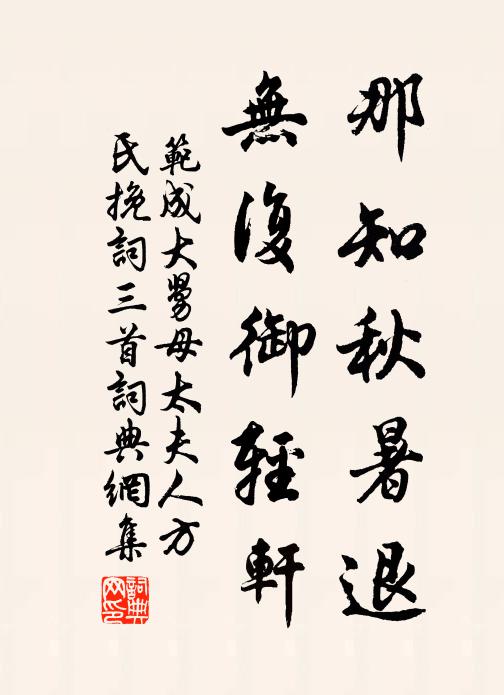 那知秋暑退
無復御輕軒
範成大舅母太夫人方
氏挽詞三首詞典網集
詞典
网印